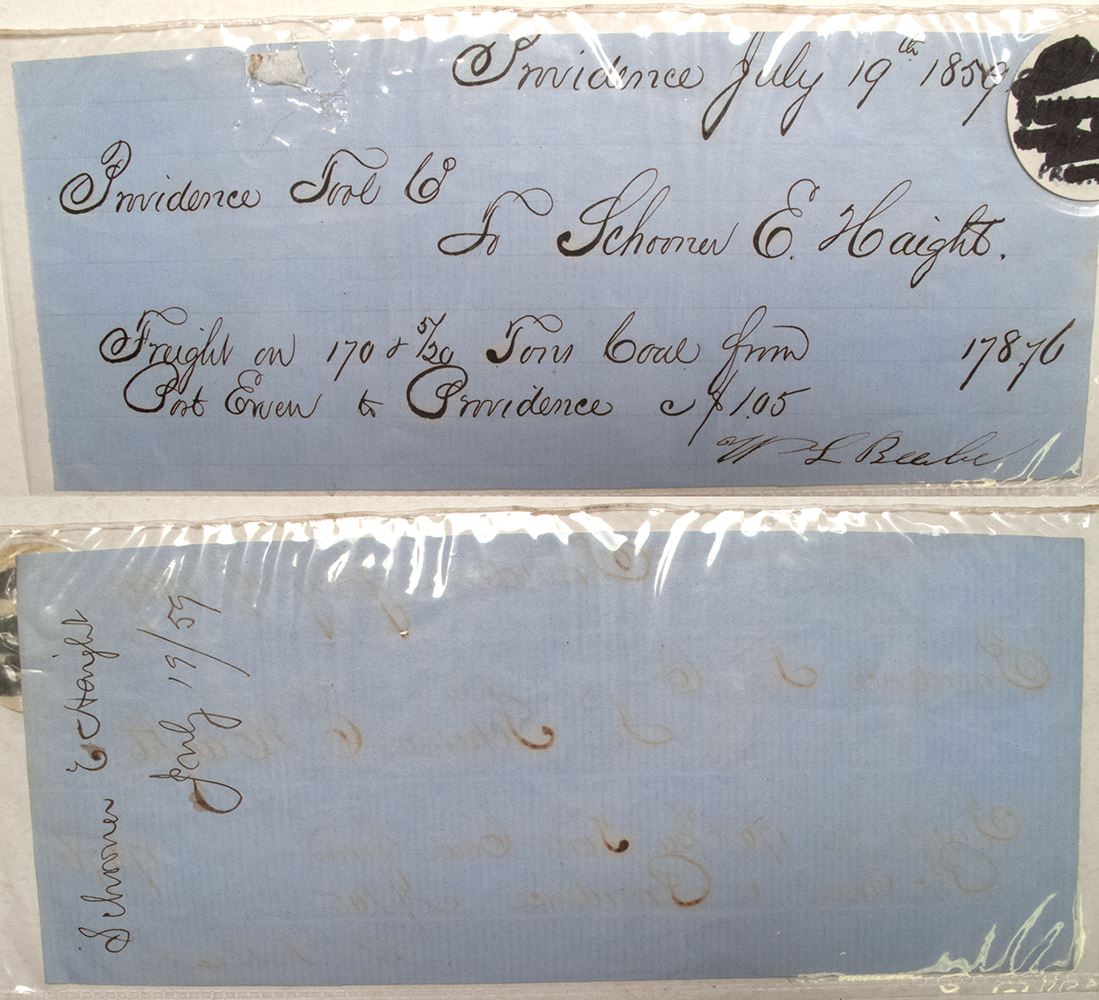 Providence July 19th 1859
Providence Tool Co
To Schooner E. Haight.
Freight on 170 & 5/20 Tons Coal from 178.76
Port Ewen to Providence @ $1.05
W L Beebe
Schooner E Haight
July 19/59